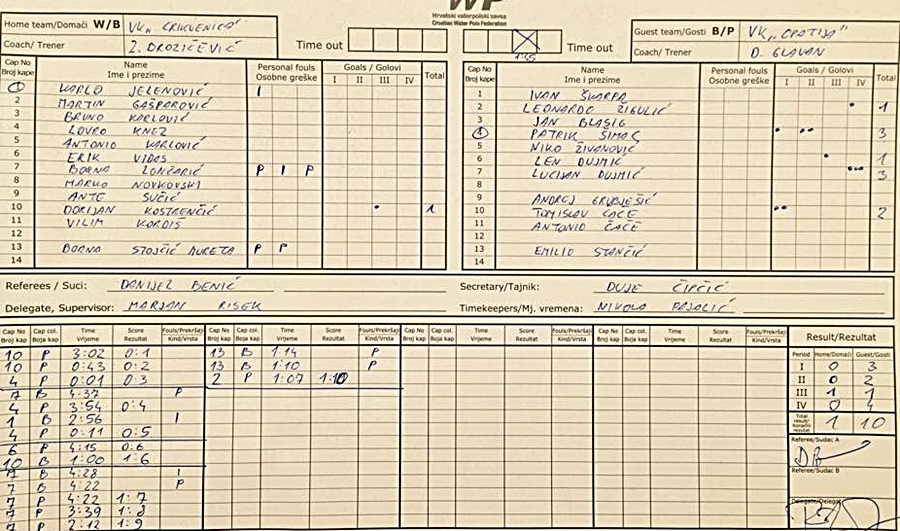 WP
Hrvatski vaterpolski savez
Croatian Water Polo Federation
Home team/Domaći W/B VK "CRIKVENICA"
Coach/ Trener Z. DROZIČEVIĆ
Time out
1:45
Time out
Guest team/Gosti B/P VK "OPATIJA"
Coach/ Trener D. GLAVAN
Cap No Name Personal fouls Goals / Golovi Total
Broj kape Ime i prezime Osobne greške I II III IV
1 KARLO JELENOVIĆ I
2 MARTIN GAŠPAROVIĆ
3 BRUNO KARLOVIĆ
4 LOVRO KNEZ
5 ANTONIO KARLOVIĆ
6 ERIK VIDAS
7 BORNA LONČARIĆ P I P
8 MARKO NOVKOVSKI
9 ANTE SUČIĆ
10 DORIJAN KOSTRENČIĆ • 1
11 VILIM KORDIS
12
13 BORNA STOJČIĆ MURETA P P
14
Cap No Name Personal fouls Goals / Golovi Total
Broj kape Ime i prezime Osobne greške I II III IV
1 IVAN ŠKARPA
2 LEONARDO ŽIGULIĆ • 1
3 JAN BLAŠIG
4 PATRIK ŠIMAC • •• 3
5 NIKO ŽIVANOVIĆ
6 LEN DUJMIĆ • 1
7 LUCIJAN DUJMIĆ ••• 3
8
9 ANDREJ GRUBJEŠIĆ
10 TOMISLAV ČAČE •• 2
11 ANTONIO ČAČE
12
13 EMILIO STANČIĆ
14
Referees / Suci: DANIJEL BENIĆ
Secretary/Tajnik: DUJE ČIPČIĆ
Delegate, Supervisor: MARJAN RISEK
Timekeepers/Mj. vremena: NIKOLA PAJALIĆ
Cap No Cap col. Time Score Fouls/Prekršaji
Broj kap Boja kap Vrijeme Rezultat Kind/Vrsta
10 P 3:02 0:1
10 P 0:43 0:2
4 P 0:01 0:3
7 B 4:37 P
4 P 3:54 0:4
1 B 2:56 I
4 P 0:11 0:5
6 P 4:15 0:6
10 B 1:00 1:6
7 B 4:28 I
7 B 4:22 P
7 P 4:22 1:7
7 P 3:39 1:8
7 P 2:12 1:9
Cap No Cap col. Time Score Fouls/Prekršaji
Broj kap Boja kap Vrijeme Rezultat Kind/Vrsta
13 B 1:14 P
13 B 1:10 P
2 P 1:07 1:10
Cap No Cap col. Time Score Fouls/Prekršaji
Broj kap Boja kap Vrijeme Rezultat Kind/Vrsta
Cap No Cap col. Time Score Fouls/Prekršaji
Broj kap Boja kap Vrijeme Rezultat Kind/Vrsta
Result/Rezultat
Period Home/Domaći Guest/Gosti
I 0 3
II 0 2
III 1 1
IV 0 4
Total result/ Konačni rezultat 1 10
Referee/Sudac A
DB
Referee/Sudac B
Delegate/Delegat